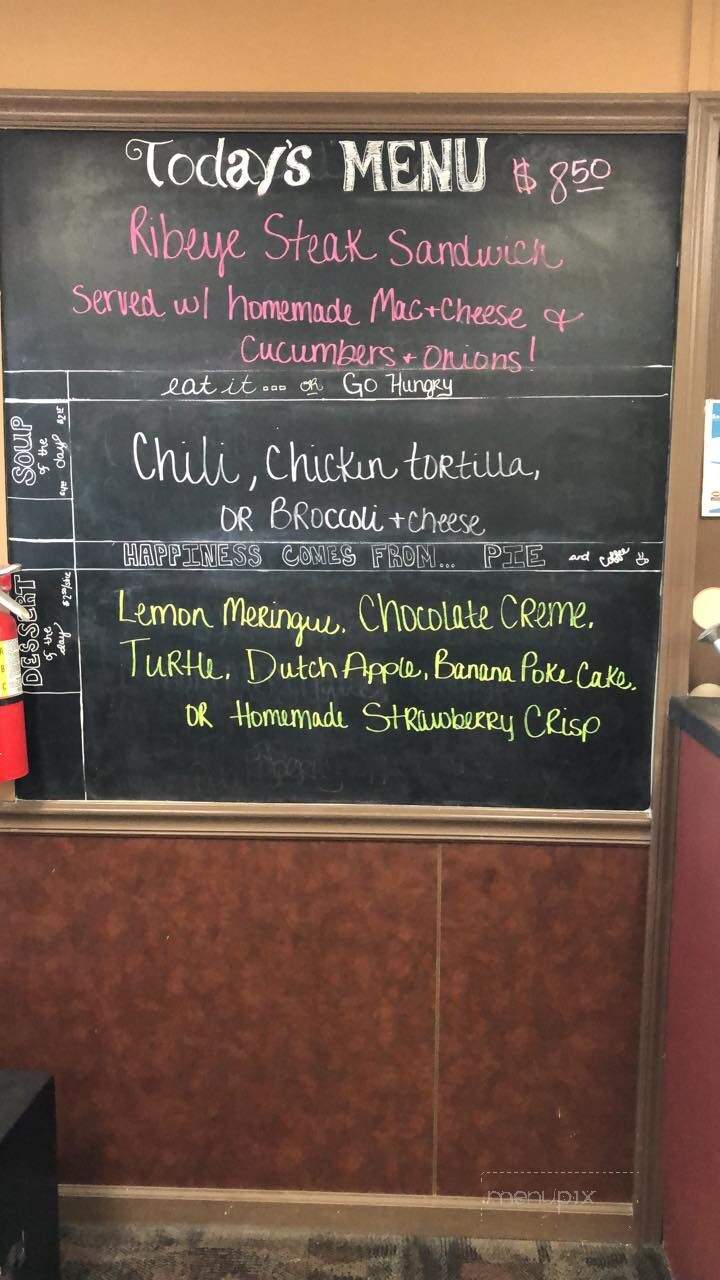 Today's MENU $ 8.50
Ribeye Steak Sandwich
Served w/ homemade Mac+Cheese &
Cucumbers + Onions!
eat it... or Go Hungry
SOUP
of the
day
Chili, Chicken tortilla,
OR BROCCOLI + cheese
HAPPINESS COMES FROM... PIE and coffee
DESSERT
of the
day
Lemon Meringue, Chocolate Creme,
Turtle, Dutch Apple, Banana Poke Cake,
OR Homemade Strawberry Crisp
A
B
C
menupix